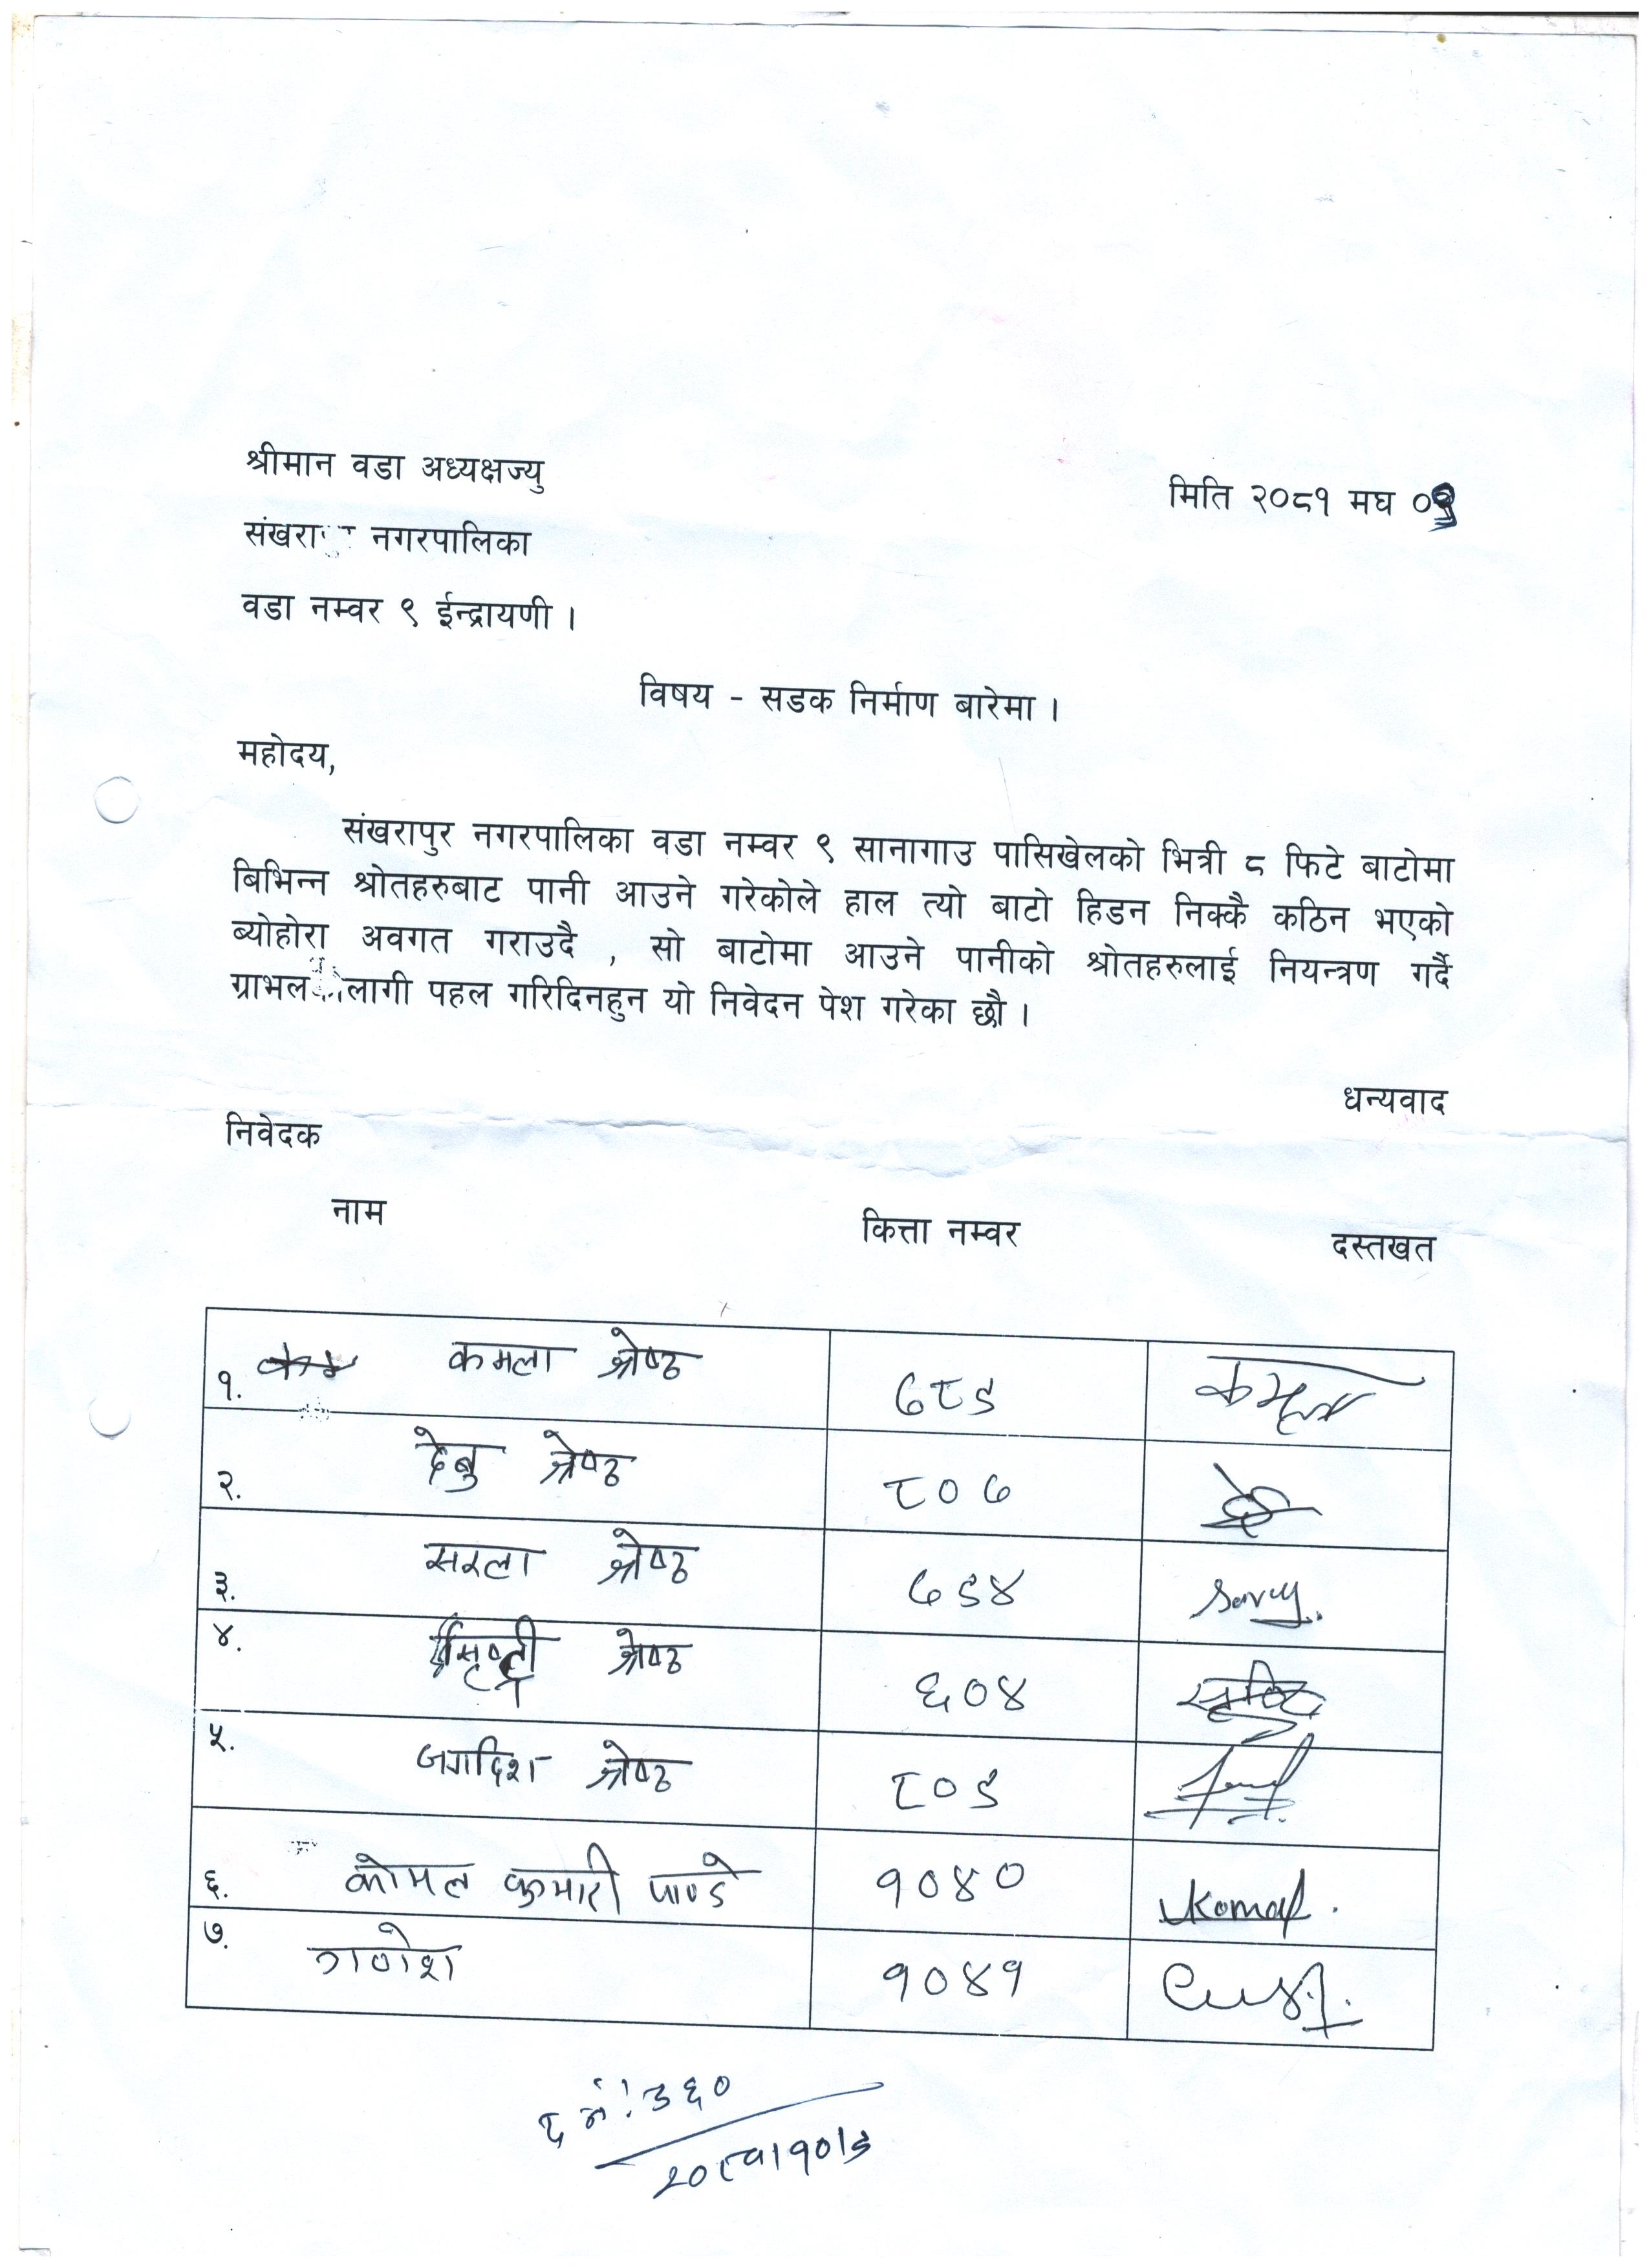 श्रीमान वडा अध्यक्षज्यु
मिति २०८१ मघ
संखरा नगरपालिका
वडा नम्वर ९ ईन्द्रायणी ।
विषय - सडक निर्माण बारेमा ।
महोदय,
संखरापुर नगरपालिका वडा नम्वर ९ सानागाउ पासिखेलको भित्री ८ फिटे बाटोमा
बिभिन्न श्रोतहरुबाट पानी आउने गरेकोले हाल त्यो बाटो हिडन निक्कै कठिन भएको
ब्योहोरा अवगत गराउदै , सो बाटोमा आउने पानीको श्रोतहरुलाई नियन्त्रण गर्दै
ग्राभल लागी पहल गरिदिनहुन यो निवेदन पेश गरेका छौ ।
धन्यवाद
निवेदक
नाम कित्ता नम्वर दस्तखत
१. कमला श्रेष्ठ ७८९ कमला
२. देबु श्रेष्ठ ८०७
३. सरला श्रेष्ठ ७९४
४. श्रेष्ठ ६०४
५. जगदिश श्रेष्ठ ८०९
६. कोमल कुमारी पाण्डे १०४० Komal.
७. गणेश १०४१